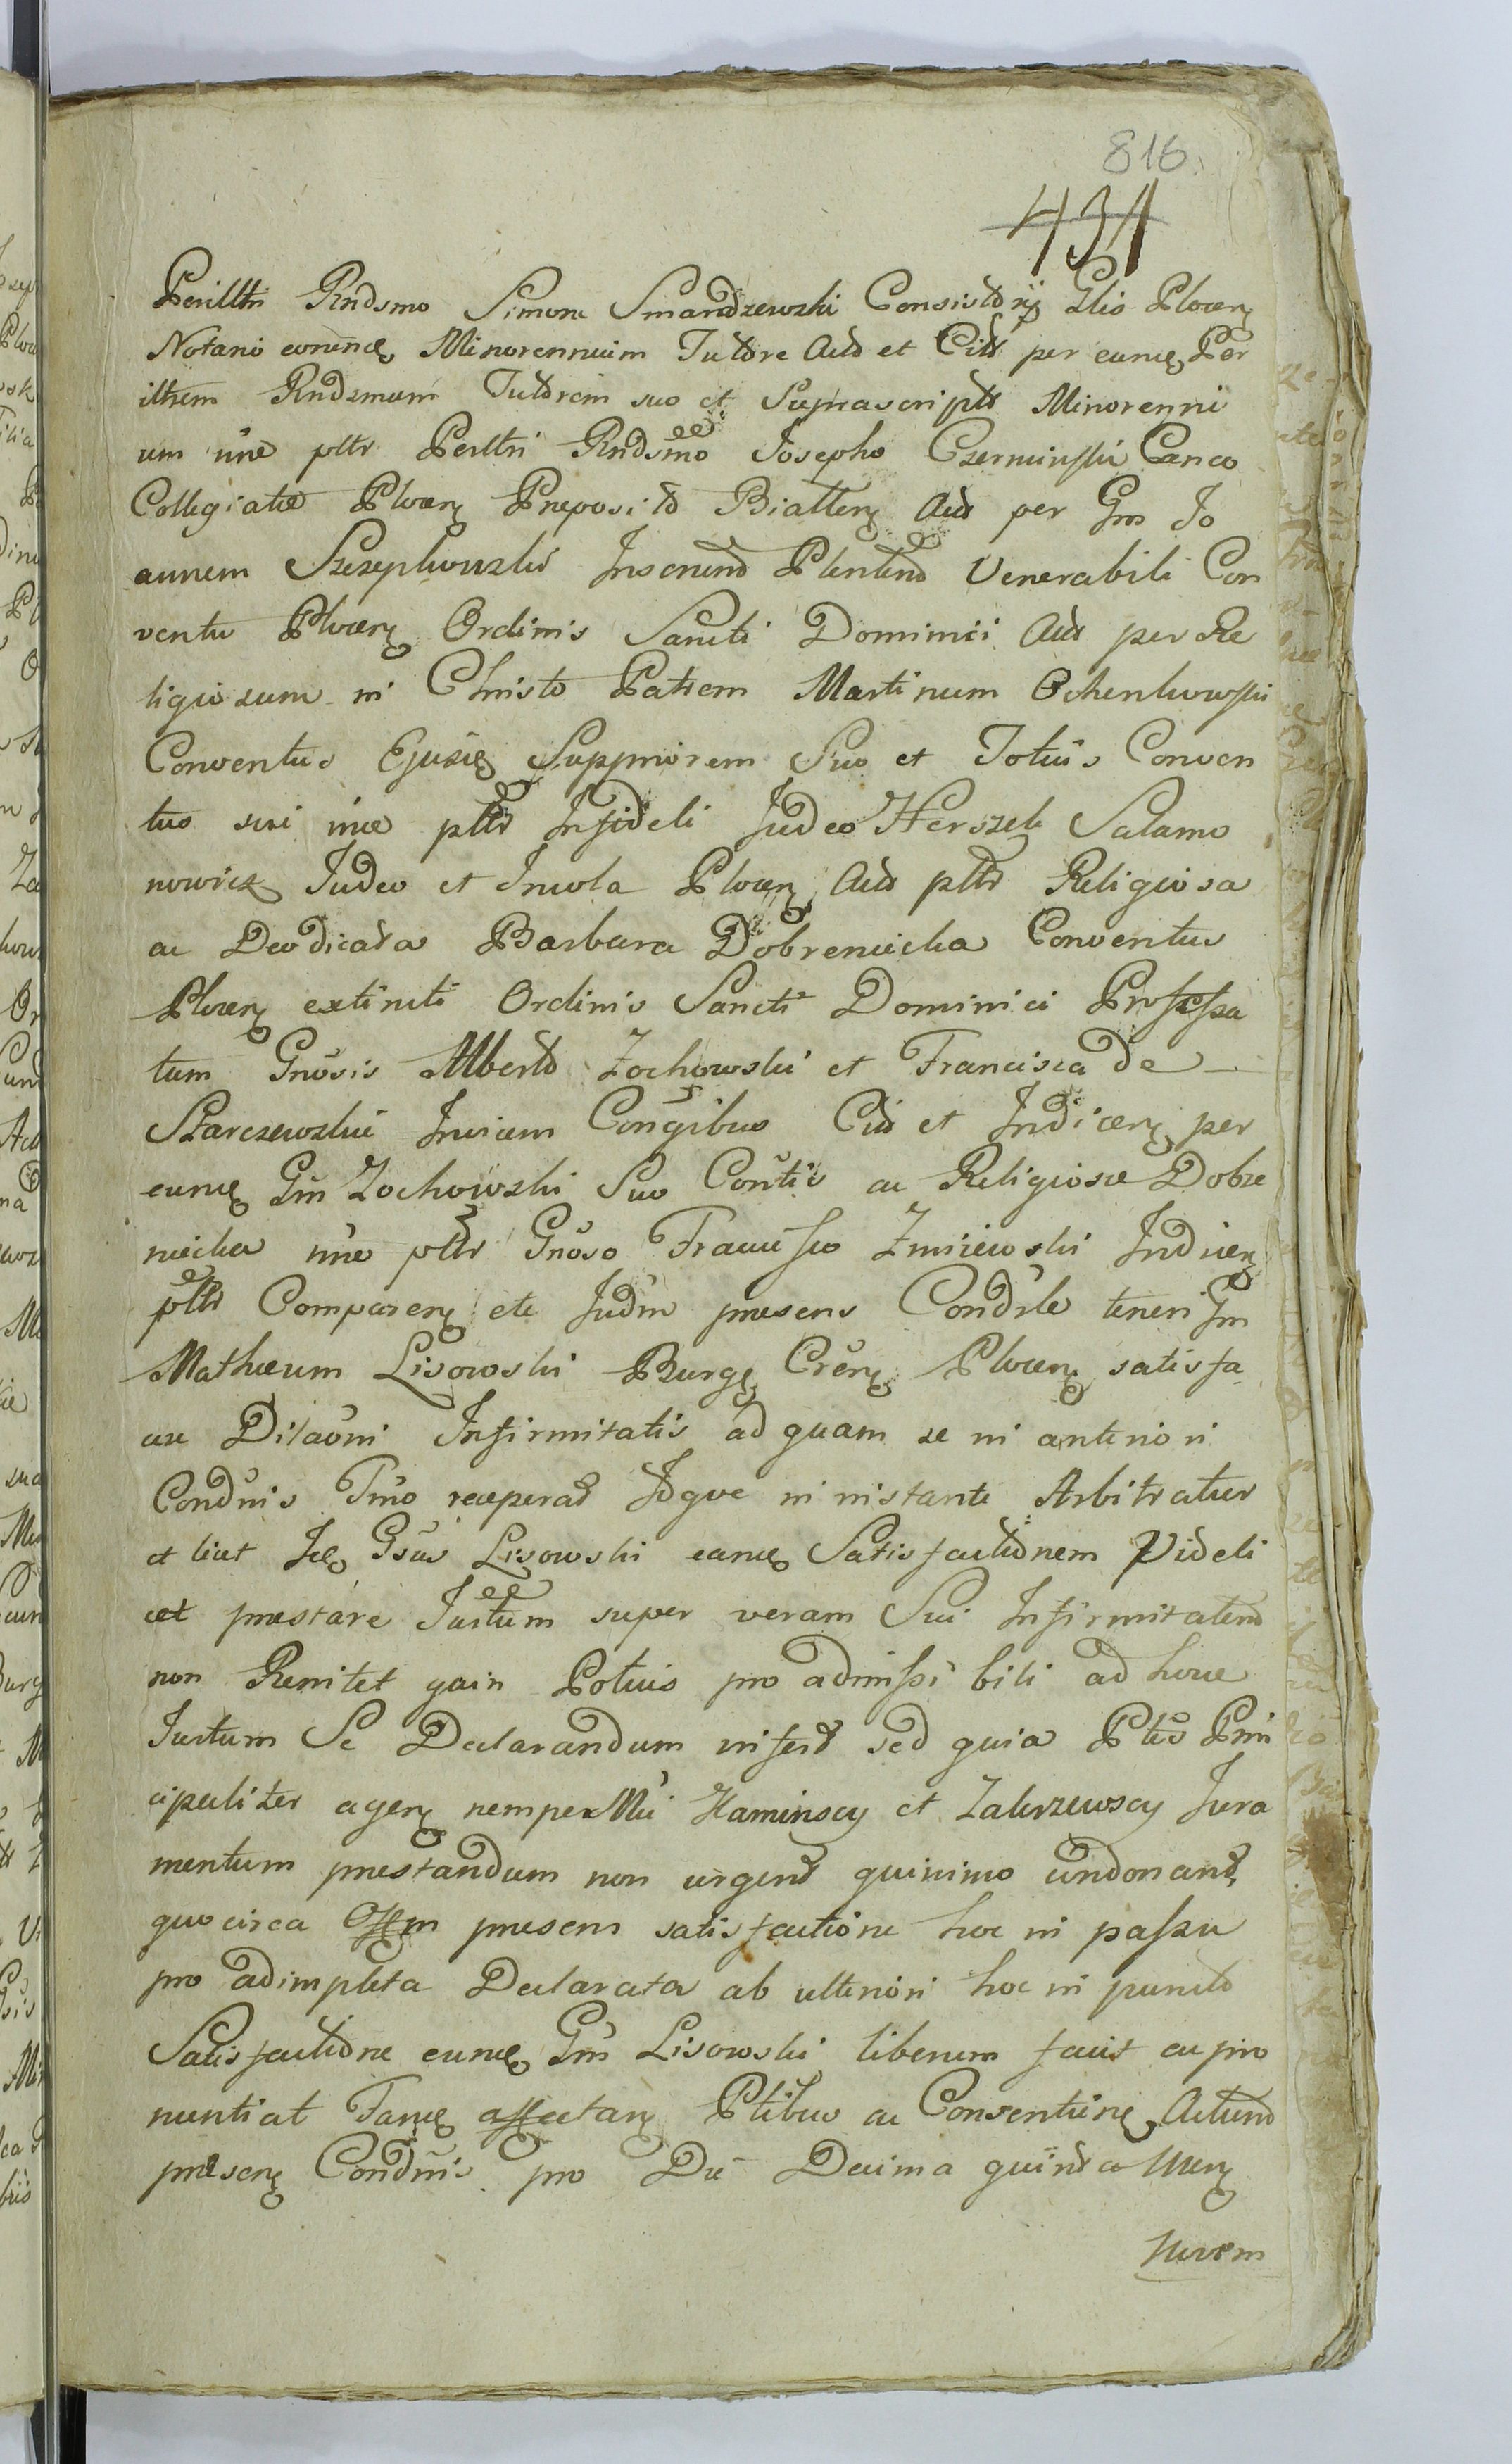 816.
431
Perilltri Rndsmo Simone Smardzewski Consistorij Glis Plocen
Notario eorundē Minorennium Tutore Acto et Citto per eundē Per
illtrem Rndsmum Tutorem suo et Suprascripto Minorenni
um nīne pttr Perlltri Rndsmo Josepho Czerminski Canco
Collegiatæ Plocen Preposito Bialten Acto per Gm Jo
annem Szczepkowski Inscnend Plentend Venerabili Con
ventu Plocen Ordinis Sancti Dominici Acto per Re
ligiosum in Christo Patrem Martinum Ochenkowski
Conventus Ejusdē Suppriorem Suo et Totius Conven
tus sui nīne pttr Infideli Judeo Herszek Salamo
nowicz Judeo et Incola Plocen Acto pttr Religiosa
ac Deodicata Barbara Dobreniecka Conventus
Plocen extincti Ordinis Sancti Dominici Professa
tum Gnosis Alberto Zochowski et Francisca de
Starczewskie Invicem Congibus Citto et Indicen per
eundē Gm Zochowski Suo Contis ac Religiosæ Dobre
niecka nīne pttr Gnoso Francisco Zmijewski Indicen
pttr Comparen etc Judm presens Condrle teneri Gm
Mathæum Lisowski Burgs Cren Plocen satisfa
cere Dilaoni Infirmitatis ad quam se in anteriori
Condnis Tmo receperat Idque in instanti Arbitratur
et licet Idē Gsus Lisowski eandē Satisfactionem Videli
cet prestare Jurtum super veram Sui Infirmitatem
non Renitet quin Potius pro admissibili ad hocce
Jurtum Se Declarandum infert sed quia Ptes Prin
cipaliter agen nempe Mci Kaminscy et Zakrzewscy Jura
mentum prestandum non urgent quinimo condonant,
quocirca Offm presens satisfactione hoc in passu
pro adimpleta Declarata ab ulteriori hoc in puncto
Satisfactione eundē Gm Lisowski liberum facit ac pro
nuntiat Tandē affectan Ptibus ac Consentine Actum
presen Condnis pro Die Decima quinta Men
Novem